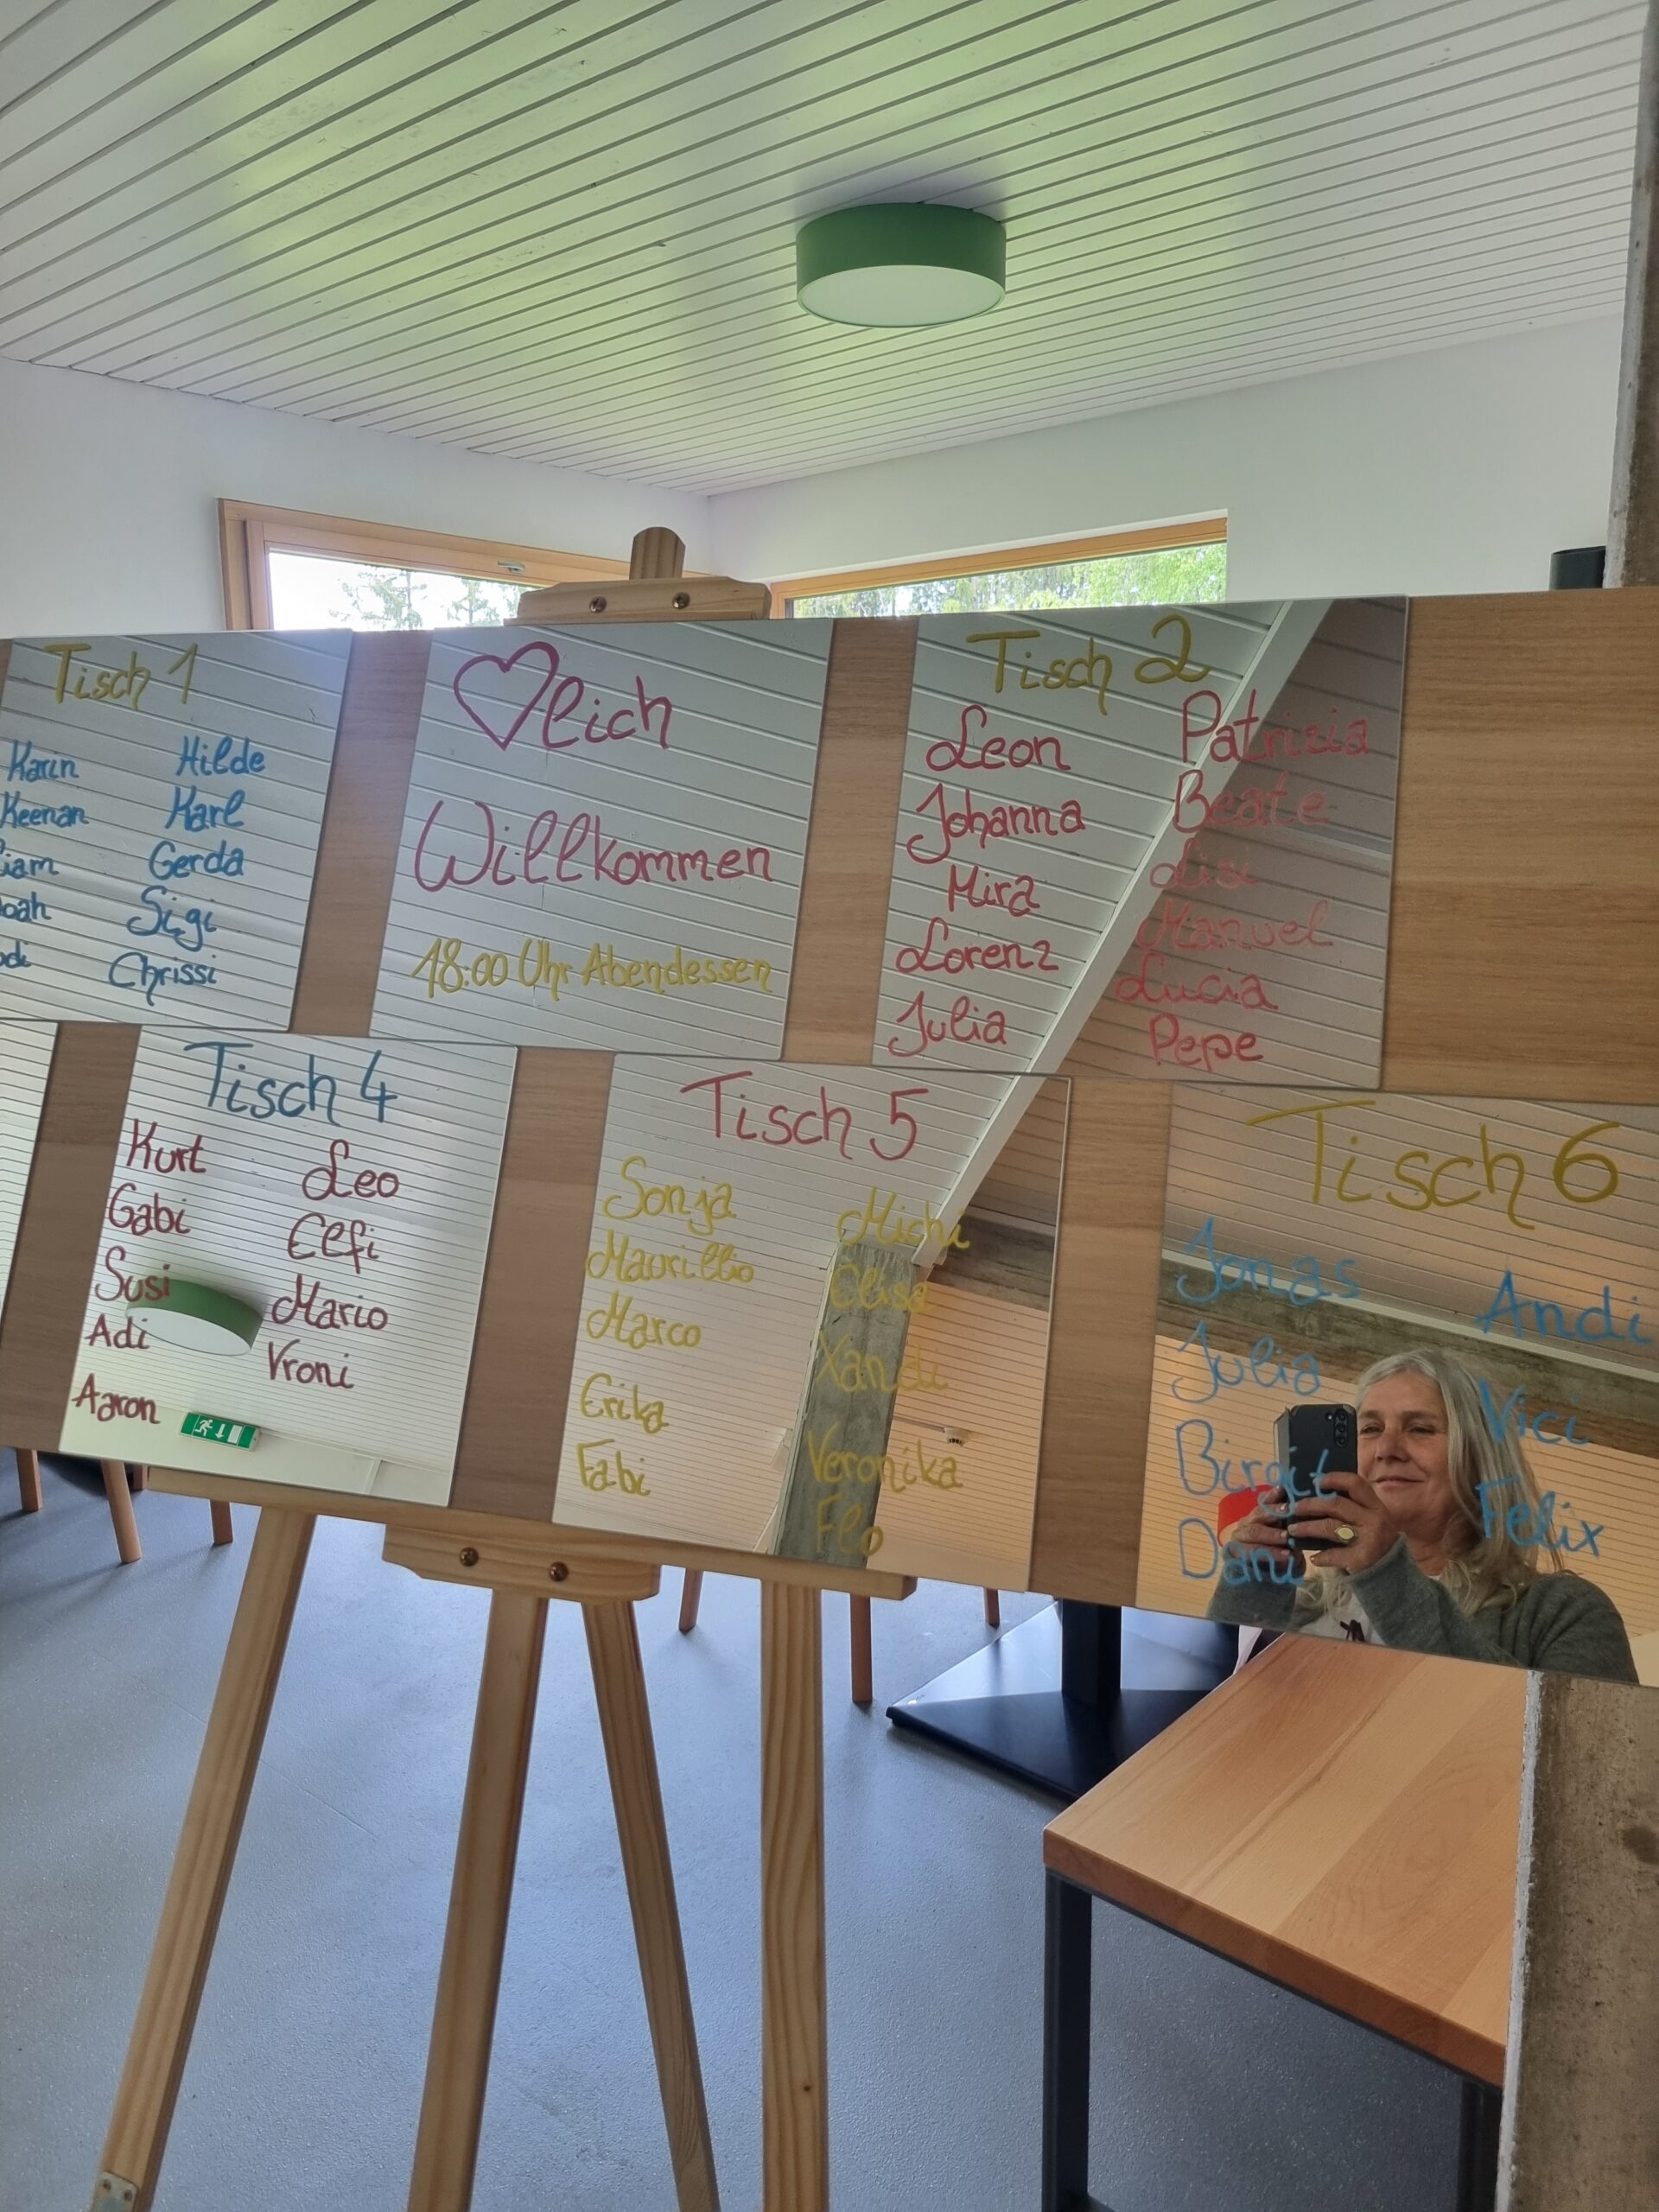 Tisch 1
Karin Hilde
Keenan Karl
Gerda
Sigi
Chrissi
♡lich
Willkommen
18:00 Uhr Abendessen
Tisch 2
Leon Patrizia
Johanna Beate
Mira Lisi
Lorenz Manuel
Julia Lucia
Pepe
Tisch 4
Kurt Leo
Gabi Elfi
Susi Mario
Adi Vroni
Aaron
Tisch 5
Sonja Michi
Maurillio Elisa
Marco Xandi
Erika Veronika
Fabi Flo
Tisch 6
Jonas Andi
Julia Vici
Birgit Felix
Dani